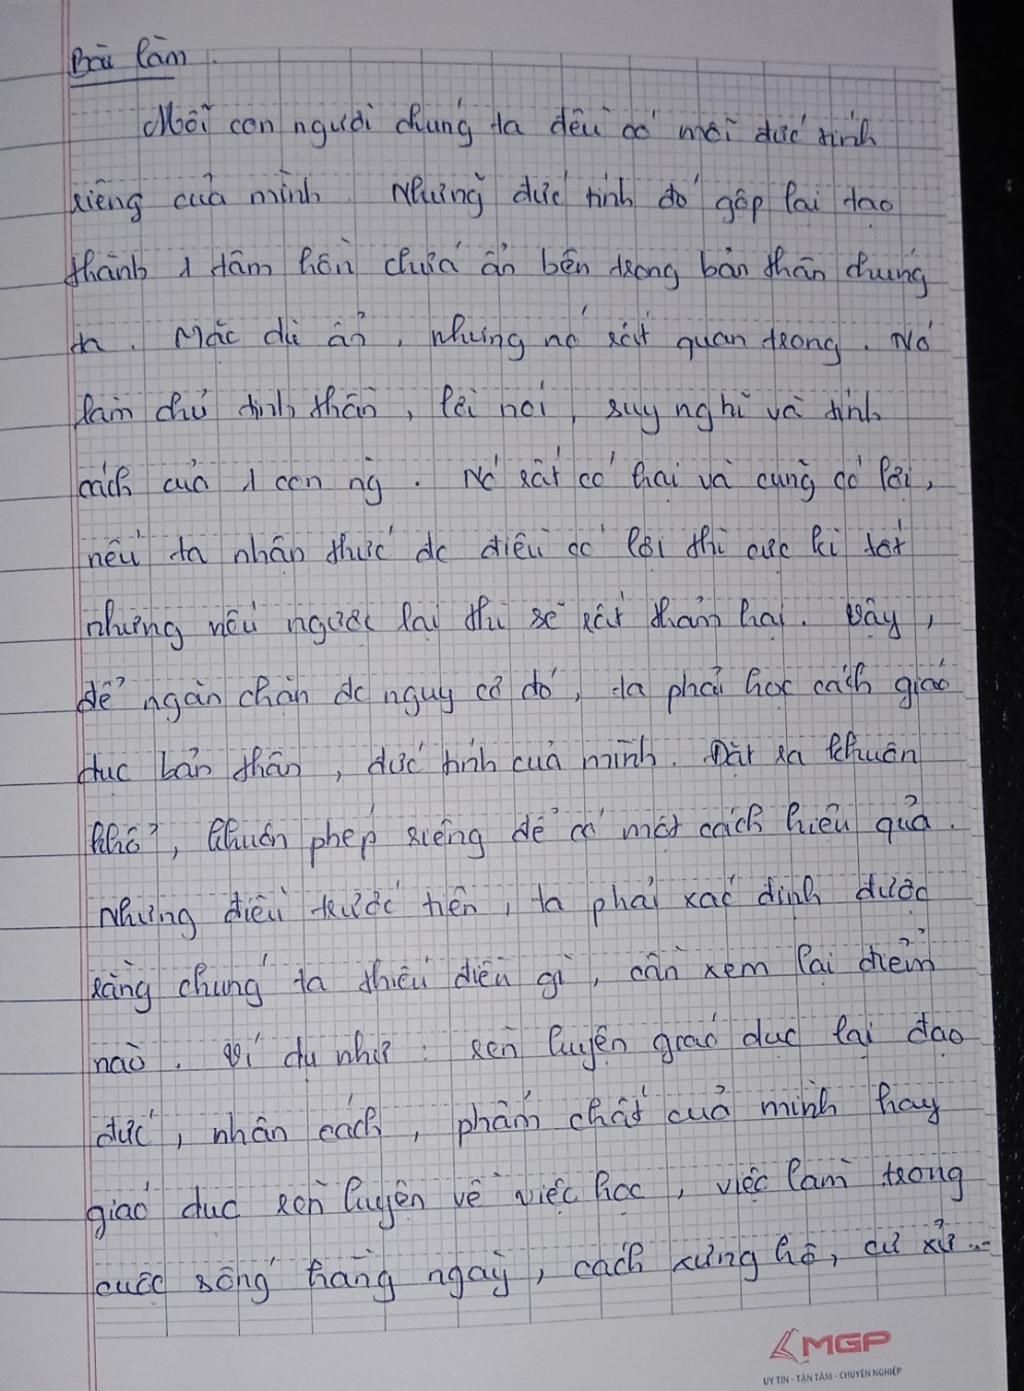 Bài làm.
Mỗi con người chúng ta đều có mỗi đức tính
riêng của mình. Những đức tính đó gộp lại tạo
thành 1 tâm hồn chứa ẩn bên trong bản thân chúng
ta. Mặc dù ẩn, nhưng nó rất quan trọng. Nó
làm chủ tinh thần, lời nói, suy nghĩ và tính
cách của 1 con ng. Nó rất có hại và cũng có lợi,
nếu ta nhận thức đc điều có lợi thì cực kì tốt
nhưng nếu ngược lại thì sẽ rất thảm hại. Vậy,
để ngăn chặn đc nguy cơ đó, ta phải học cách giáo
dục bản thân, đức tính của mình. Đặt ra khuôn
khổ, khuôn phép riêng để có một cách hiệu quả.
Nhưng điều trước tiên, ta phải xác định được
rằng chúng ta thiếu điều gì, cần xem lại điểm
nào. Ví dụ như: rèn luyện giáo dục lại đạo
đức, nhân cách, phẩm chất của mình hay
giáo dục rèn luyện về việc học, việc làm trong
cuộc sống hằng ngày, cách xưng hô, cư xử...
MGP
UY TÍN - TẬN TÂM - CHUYÊN NGHIỆP